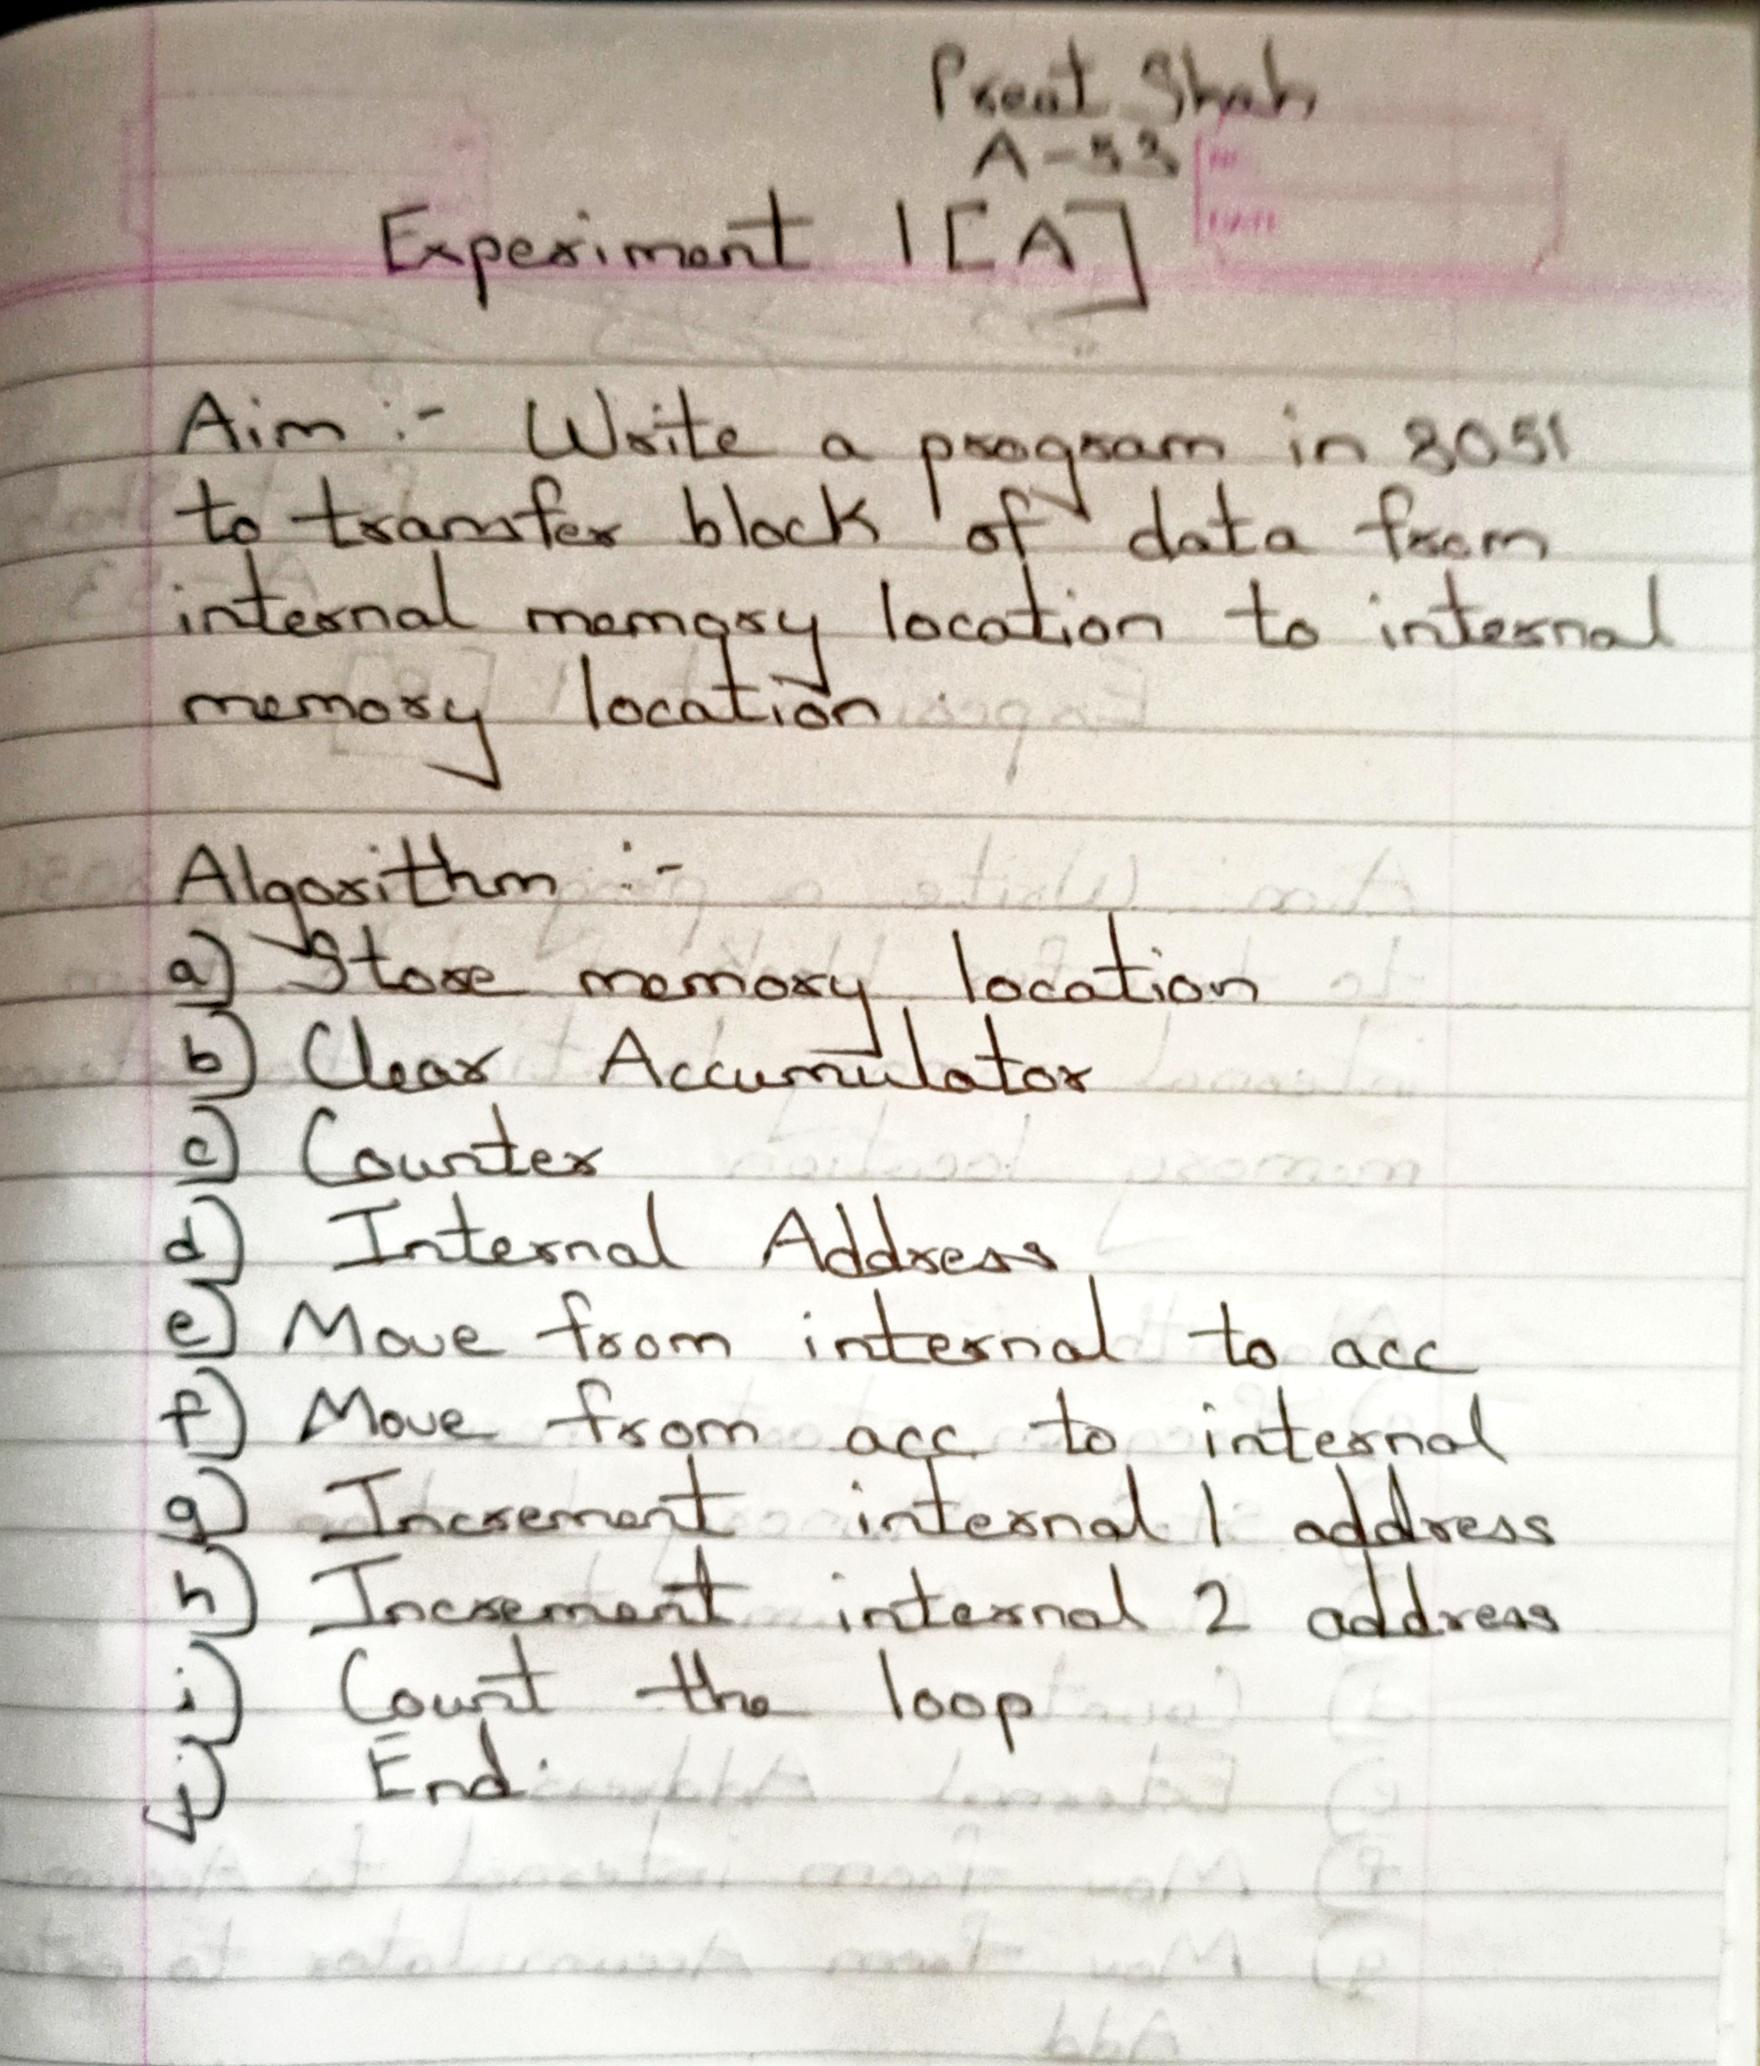 Preat Shah
A-53
Experiment 1[A]
Aim :- Write a program in 8051
to transfer block of data from
internal memory location to internal
memory location
Algorithm :-
a) Store memory location
b) Clear Accumulator
c) Counter
d) Internal Address
e) Move from internal to acc
f) Move from acc to internal
g) Increment internal 1 address
h) Increment internal 2 address
i) Count the loop
j) End.